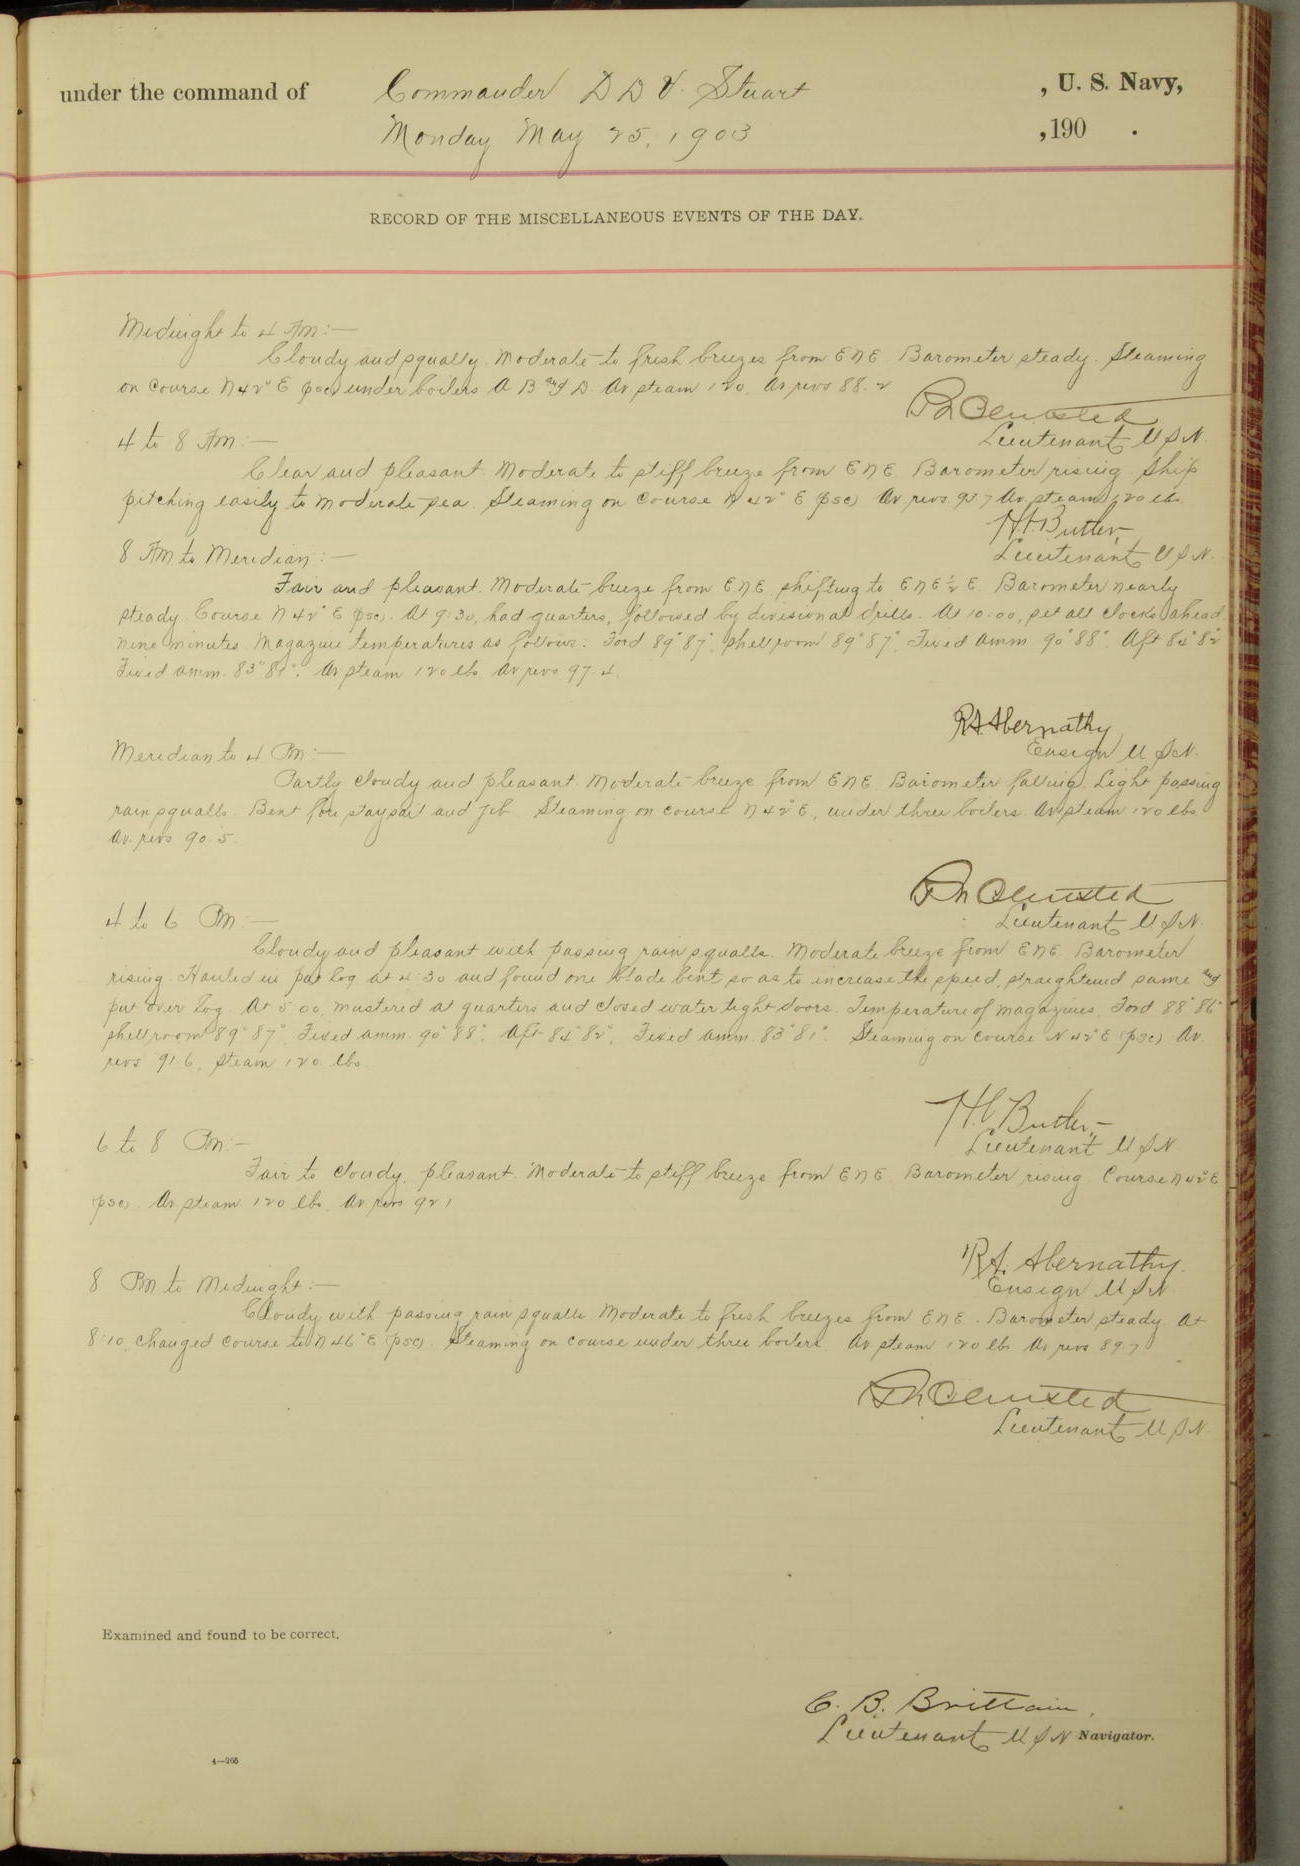 under the command of Commander D D V. Stuart , U. S. Navy,
Monday May 25, 1903 , 190 .
RECORD OF THE MISCELLANEOUS EVENTS OF THE DAY.
Midnight to 4 AM:—
Cloudy and squally. Moderate to fresh breezes from ENE Barometer steady. Steaming
on course N42°E (psc) under boilers A B and D. Av. steam 120. Av. revs 88.2
Olmsted
Lieutenant U S N.
4 to 8 AM:—
Clear and pleasant. Moderate to stiff breeze from ENE. Barometer rising. Ship
pitching easily to moderate sea. Steaming on course N 42° E (psc) Av. revs 93.7 Av. steam 120 lbs.
Butler,
Lieutenant U S N.
8 AM to Meridian:—
Fair and pleasant. Moderate breeze from ENE, shifting to ENE½E. Barometer nearly
steady. Course N 42° E (psc). At 9:30, had quarters, followed by divisional drills. At 10:00, set all clocks ahead
nine minutes. Magazine temperatures as follows: Ford 89° 87°, shell room 89° 87°, Fixed amm. 90° 88°. Aft 84° 82°
Fixed amm. 83° 81°. Av. steam 120 lbs. Av. revs 97.4.
R A Abernathy
Ensign U S N.
Meridian to 4 PM:—
Partly cloudy and pleasant. Moderate breeze from ENE. Barometer falling. Light passing
rain squalls. Bent fore staysail and jib. Steaming on course N42°E, under three boilers. Av. steam 120 lbs
Av. revs 90.5.
Olmsted
Lieutenant U S N.
4 to 6 PM:—
Cloudy and pleasant with passing rain squalls. Moderate breeze from ENE. Barometer
rising. Hauled in pat log at 4:30 and found one blade bent so as to increase the speed, straightened same and
put over log. At 5:00, mustered at quarters and closed water tight doors. Temperature of magazines, Ford 88° 86°
shell room 89° 87°, Fixed amm. 90° 88°. Aft 84° 82°, Fixed amm. 83° 81°. Steaming on course N 42° E (psc) Av.
revs 91.6, steam 120 lbs.
Butler,
Lieutenant U S N
6 to 8 PM:—
Fair to cloudy, pleasant. Moderate to stiff breeze from ENE. Barometer rising. Course N 42° E
(psc). Av. steam 120 lbs. Av. revs 92.1
R A. Abernathy.
Ensign U S N.
8 PM to Midnight:—
Cloudy with passing rain squalls Moderate to fresh breezes from ENE. Barometer steady. At
8:10, changed course to N46°E (psc). Steaming on course under three boilers. Av. steam 120 lbs Av. revs 89.7
Olmsted
Lieutenant U S N.
Examined and found to be correct.
C. B. Brittain,
Lieutenant U S N Navigator.
4—266